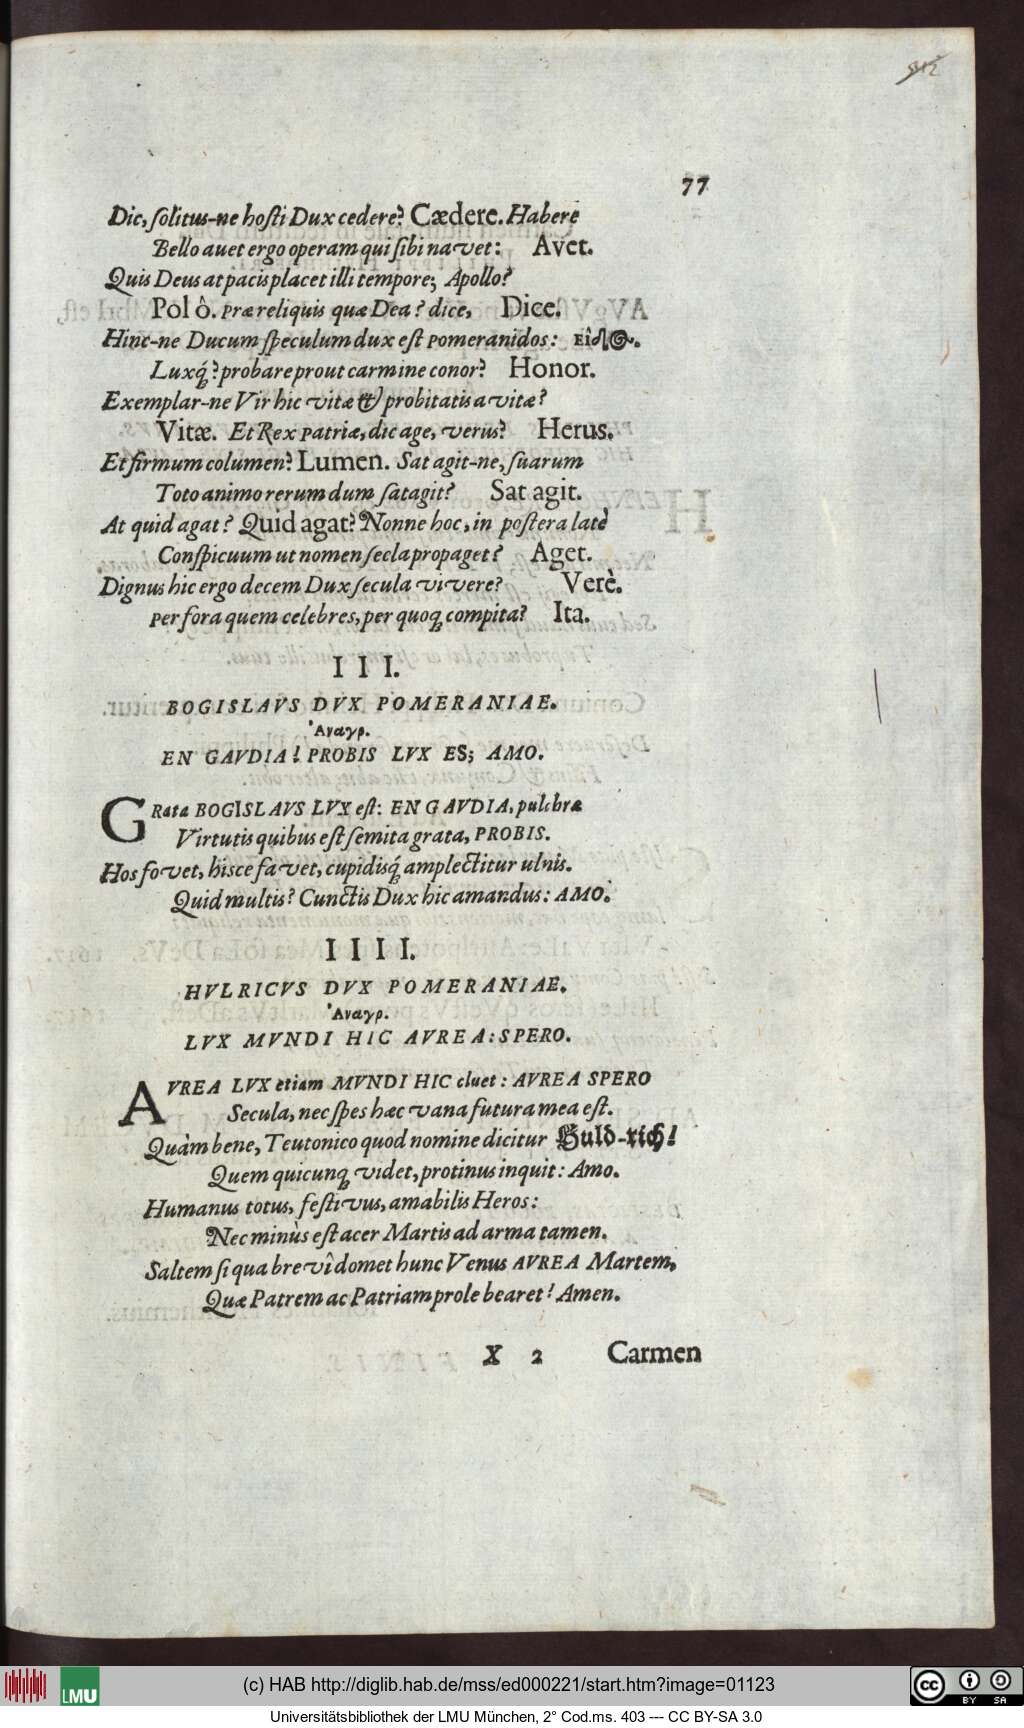 77
Dic, solitus-ne hosti Dux cedere? Cædere. Habere
Bello auet ergo operam qui sibi navet: Avet.
Quis Deus at pacis placet illi tempore; Apollo?
Pol ô. Præ reliquis quæ Dea? dice, Dice.
Hinc-ne Ducum speculum dux est Pomeranidos:
Luxq́;? probare prout carmine conor? Honor.
Exemplar-ne Vir hic vitæ & probitatis avitæ?
Vitæ. Et Rex patriæ, dic age, verus? Herus.
Et firmum columen? Lumen. Sat agit-ne, suarum
Toto animo rerum dum satagit? Sat agit.
At quid agat? Quid agat? Nonne hoc, in postera latè
Conspicuum ut nomen secla propaget? Aget.
Dignus hic ergo decem Dux secula vivere? Verè.
Per fora quem celebres, per quoq; compita? Ita.
III.
BOGISLAVS DVX POMERANIAE.
Ἀναγρ.
EN GAVDIA! PROBIS LVX ES; AMO.
GRata BOGISLAVS LVX est: EN GAVDIA, pulchræ
Virtutis quibus est semita grata, PROBIS.
Hos fovet, hisce favet, cupidisq́; amplectitur ulnis.
Quid multis? Cunctis Dux hic amandus: AMO.
IIII.
HVLRICVS DVX POMERANIAE.
Ἀναγρ.
LVX MVNDI HIC AVREA: SPERO.
AVREA LVX etiam MVNDI HIC cluet: AVREA SPERO
Secula, nec spes hæc vana futura mea est.
Quàm bene, Teutonico quod nomine dicitur Huld-rich!
Quem quicunq; videt, protinus inquit: Amo.
Humanus totus, festivus, amabilis Heros:
Nec minùs est acer Martis ad arma tamen.
Saltem si qua brevî domet hunc Venus AVREA Martem,
Quæ Patrem ac Patriam prole bearet! Amen.
X 2 Carmen
LMU
(c) HAB http://diglib.hab.de/mss/ed000221/start.htm?image=01123
Universitätsbibliothek der LMU München, 2° Cod.ms. 403 --- CC BY-SA 3.0
cc BY SA